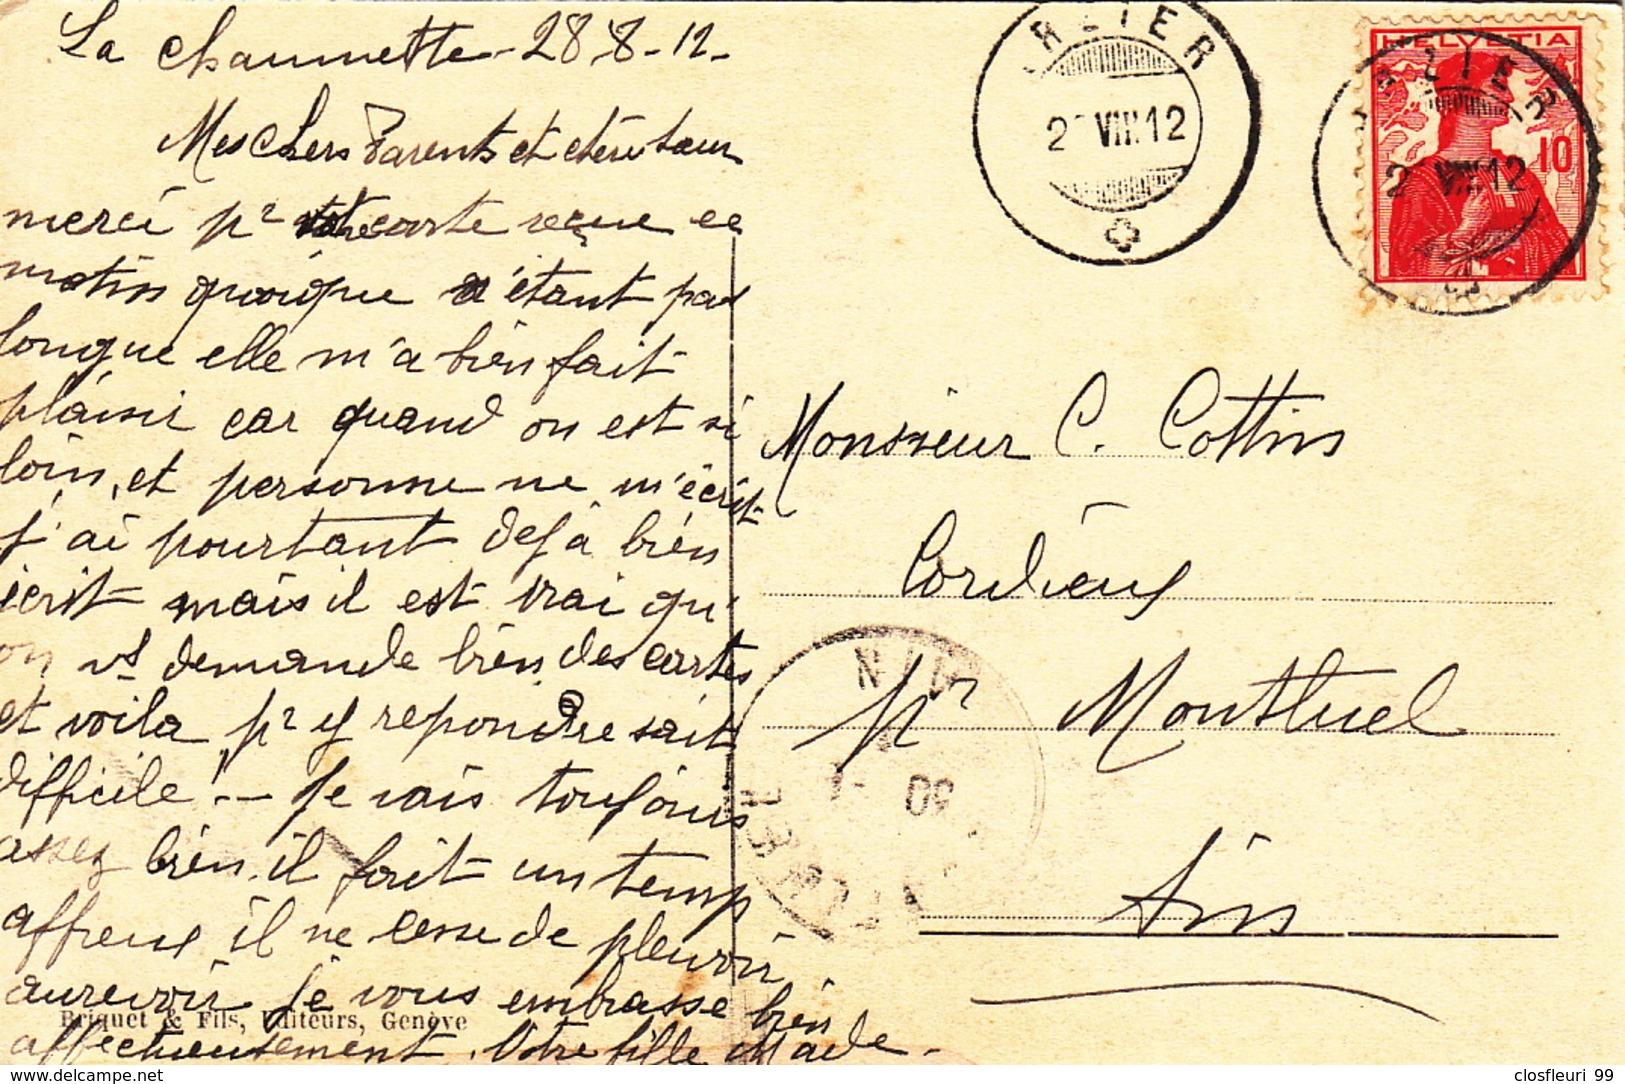 La Chaumette - 28-8-12-
Mes Chers Parents et chère soeur
merci pr votre carte reçue ce
matin quoique n'étant pas
longue elle m'a bien fait
plaisir car quand on est si
loin, et personne ne m'écrit
j'ai pourtant dejà bien
écrit mais il est vrai qu'
on vs demande bien des cartes
et voila pr y repondre sait
difficile. - Je vais toujours
assez bien. il fait un temps
affreux il ne cesse de pleuvoir
aurevoir je vous embrasse bien
affectueusement. Votre fille
Briquet & Fils, Editeurs, Genève
RLIER
2 VIII.12
HELVETIA
10
RLIER
2 VIII 12
Monsieur C. Cottin
Cordieux
pr Montluel
Ain
closfleuri 99